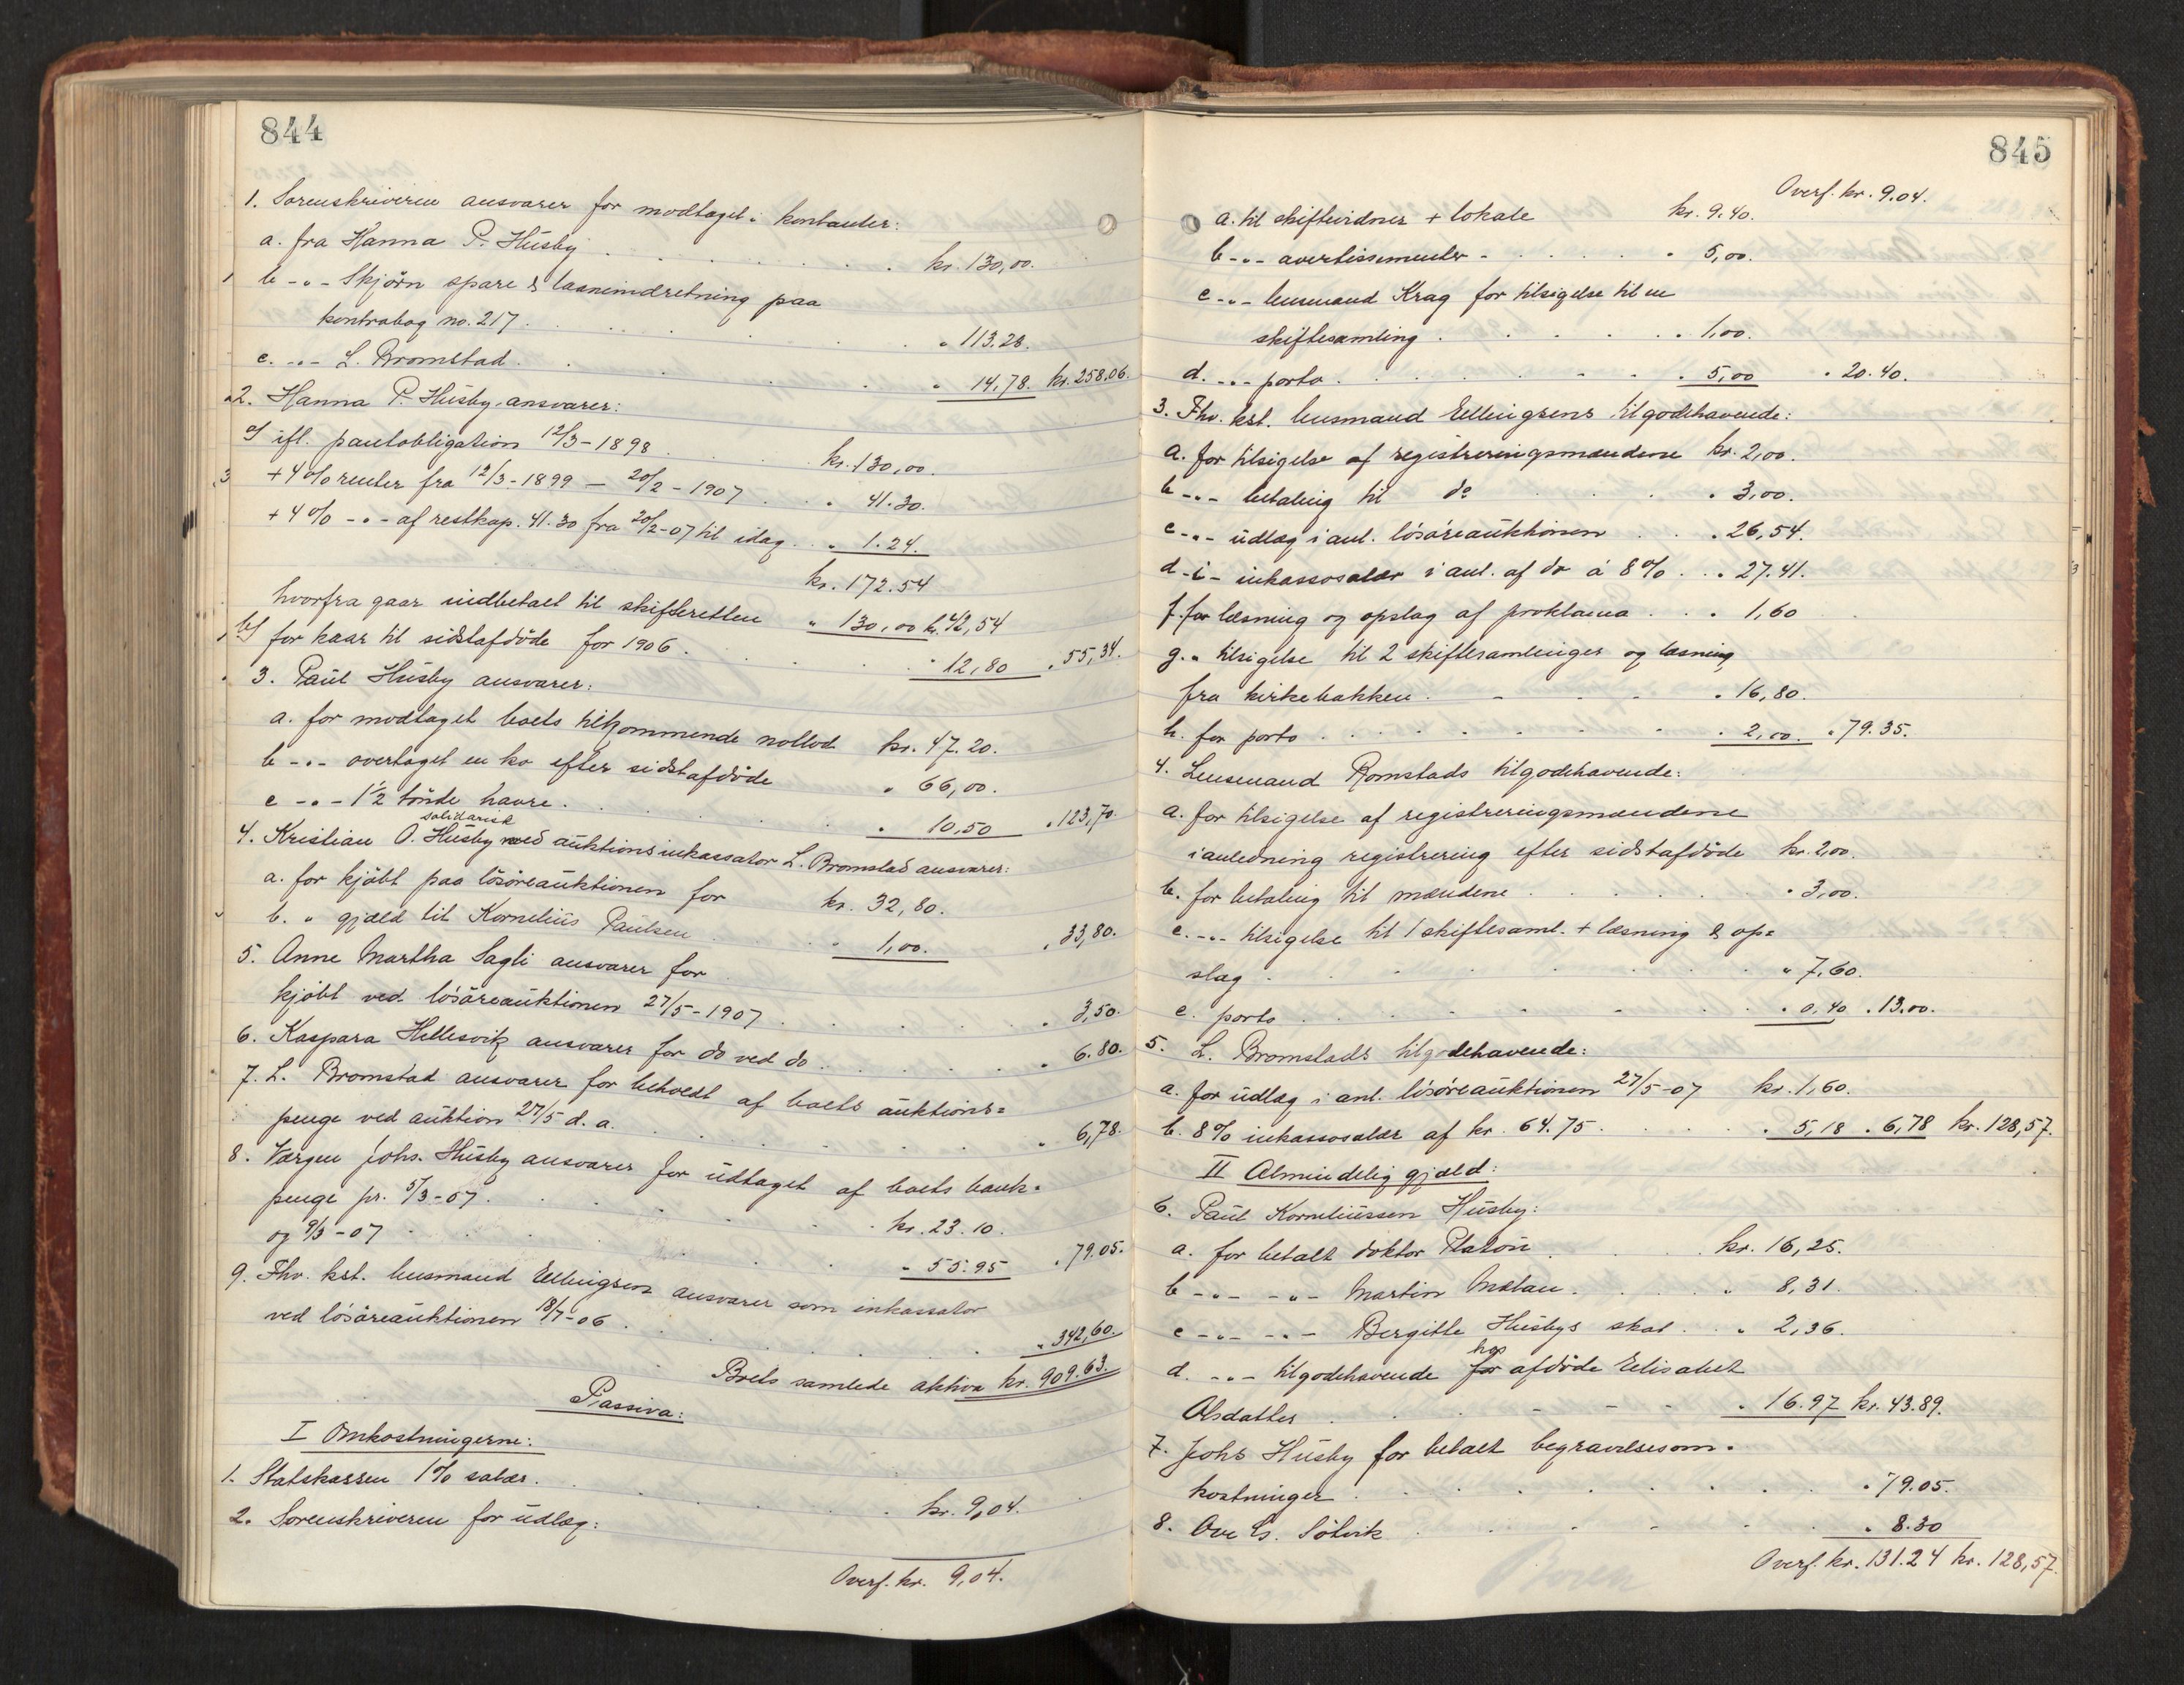 844
1. Sorenskriveren ansvarer for modtaget i kontanter:
a. fra Hanna P. Husby . . . . kr. 130,00.
b -"- Skjörn spare & laaneindretning paa
kontrabog no. 217 . . . . " 113.28.
c. -"- L. Bromstad . . . . " 14,78. kr. 258.06.
2. Hanna P. Husby ansvarer:
a/ ifl. pantobligation 12/3-1898 . . . kr. 130,00.
+ 4% renter fra 12/3-1899 - 20/2-1907 . . " 41.30.
+ 4% -"- af restkap. 41.30 fra 20/2-07 til idag . . " 1.24.
kr. 172.54
hvorfra gaar indbetalt til skifteretten " 130,00 kr. 42,54
b/ for kaar til sidstafdöde for 1906 . . . . " 12,80 " 55,34.
3. Paul Husby ansvarer:
a. for modtaget boets tilkommende nollod kr. 47.20.
b -"- overtaget en ko efter sidstafdöde " 66,00.
c -"- 1 1/2 tönde havre . . . . " 10,50 " 123,70.
solidarisk
4. Kristian O. Husby med auktionsinkassator L. Bromstad ansvarer:
a. for kjöbt paa lösöreauktionen for kr. 32,80.
b. " gjæld til Kornelius Paulsen . . . " 1,00. " 33,80.
5. Anne Martha Sagli ansvarer for
kjöbt ved lösöreauktionen 27/5-1907 . . . . " 3,50.
6. Kaspara Hellesvik ansvarer for do ved do . . . . " 6.80.
7. L. Bromstad ansvarer for beholdt af boets auktions=
penge ved auktion 27/5 d. a. . . . . " 6,78.
8. Værgen Johs. Husby ansvarer for udtaget af boets bank=
penge pr. 5/3-07 . . . . kr. 23.10.
og 9/3-07 . . . . " 55.95 " 79.05.
9. Fhv. kst. lensmand Ellingsen ansvarer som inkassator
ved lösöreauktionen 18/7-06 . . . . " 342,60.
Boets samlede aktiva kr. 909.63.
Passiva:
I Omkostningerne:
1. Statskassen 1% salær . . . . kr. 9,04.
2. Sorenskriveren for udlæg:
Overf. kr. 9,04.
845
Overf. kr. 9.04.
a. til skiftevidner + lokale kr. 9.40.
b -"- avertissementer - . . . . " 5,00.
c -"- lensmand Krag for tilsigelse til en
skiftesamling . . . . " 1,00.
d. -"- porto . . . . " 5,00 " 20.40.
3. Fhv. kst. lensmand Ellingsens tilgodehavende:
a. for tilsigelse af registreringsmændene kr. 2,00.
b -"- betaling til do . . . " 3,00.
c -"- udlæg i anl. lösöreauktionen . . . " 26,54.
d -"- inkassosalær i anl. af do à 8% . . " 27.41.
f. for læsning og opslag af proklama . . . " 1,60
g. " tilsigelse til 2 skiftesamlinger og læsning
fra kirkebakken . . . . " 16,80.
h. for porto . . . . " 2,00. " 79.35.
4. Lensmand Romstads tilgodehavende:
a. for tilsigelse af registreringsmændene
i anledning registrering efter sidstafdöde kr. 2,00.
b. for betaling til mændene . . . . " 3,00.
c. -"- tilsigelse til 1 skiftesaml. + læsning & op=
slag . . . . " 7,60.
e. porto . . . . " 0,40 " 13.00.
5. L. Bromstads tilgodehavende:
a. for udlæg i anl. lösöreauktionen 27/5-07 kr. 1,60.
b. 8% inkassosalær af kr. 64.75 . . . . " 5,18 " 6,78 kr. 128,57.
II Almindelig gjæld:
6. Paul Korneliussen Husby:
a. for betalt doktor Platou . . . kr. 16,25.
b -"- -"- Martin Mælan . . . . " 8,31.
c -"- -"- Bergitte Husbys skat . . " 2,36.
hos
d. -"- tilgodehavende for afdöde Elisabet
Olsdatter . . . . " 16.97 kr. 43.89.
7. Johs Husby for betalt begravelsesom=
kostninger . . . . " 79.05.
8. Ove Solvik . . . . " 8.30
Overf. kr. 131.24 kr. 128,57.